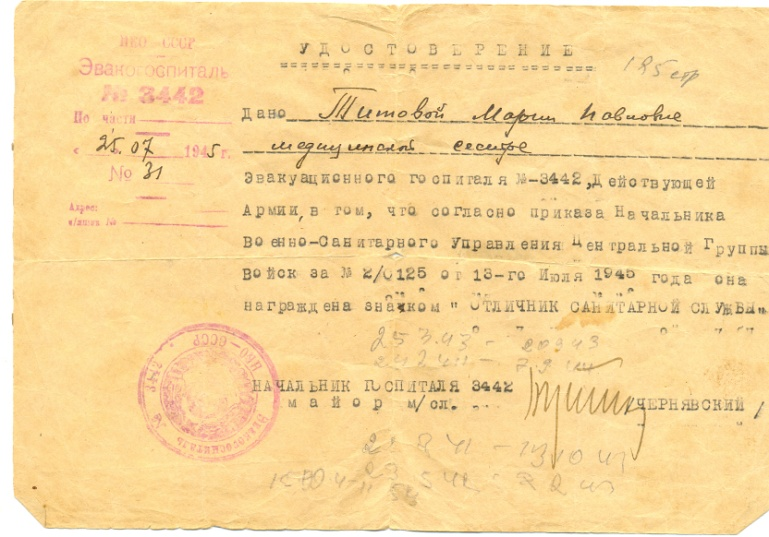 НКО СССР
Эвакогоспиталь
№ 3442
По части
« 25. 07 1945 г.
№ 31
Адрес:
п/ящик №
УДОСТОВЕРЕНИЕ
185 стр
Дано Титовой Марии Павловне
медицинской сестре
Эвакуационного госпиталя №-3442, Действующей
Армии, в том, что согласно приказа Начальника
Военно-Санитарного Управления Центральной Группы
Войск за № 2/0125 от 13-го Июля 1945 года она
награждена значком " ОТЛИЧНИК САНИТАРНОЙ СЛУЖБЫ"
НАЧАЛЬНИК ГОСПИТАЛЯ 3442
майор м/сл. /ЧЕРНЯВСКИЙ/
НКО-СССР
Эвакогоспиталь № 3442